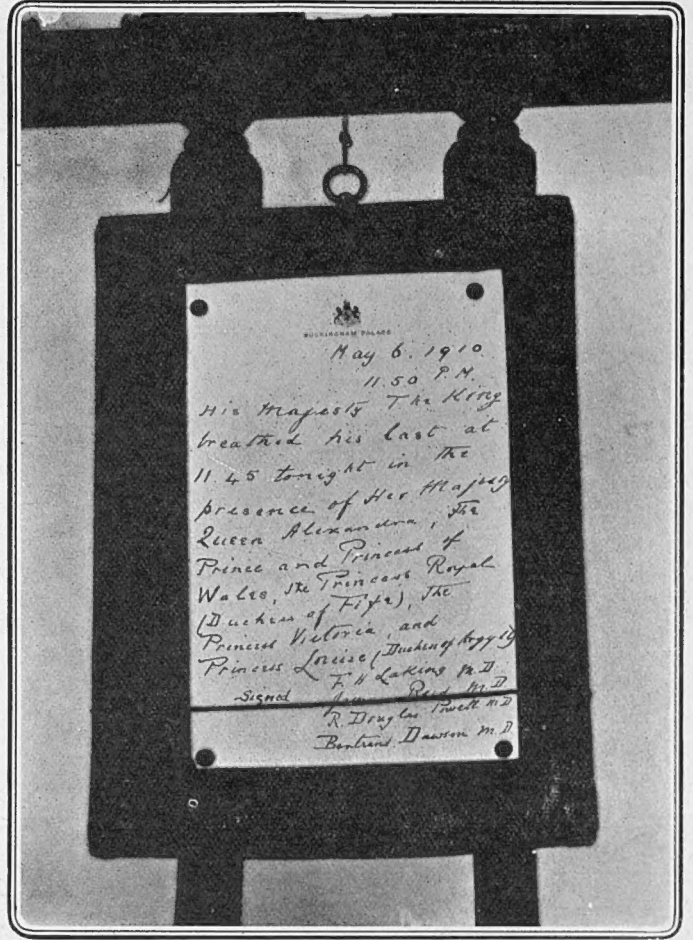 BUCKINGHAM PALACE
May 6. 1910.
11.50 P.M.
His Majesty The King
breathed his last at
11.45 tonight in the
presence of Her Majesty
Queen Alexandra, The
Prince and Princess of
Wales, The Princess Royal
(Duchess of Fife), The
Princess Victoria, and
Princess Louise (Duchess of Argyll)
F. H Laking M.D.
Signed Reid M.D
R. Douglas Powell M.D
Bertrand Dawson M.D.